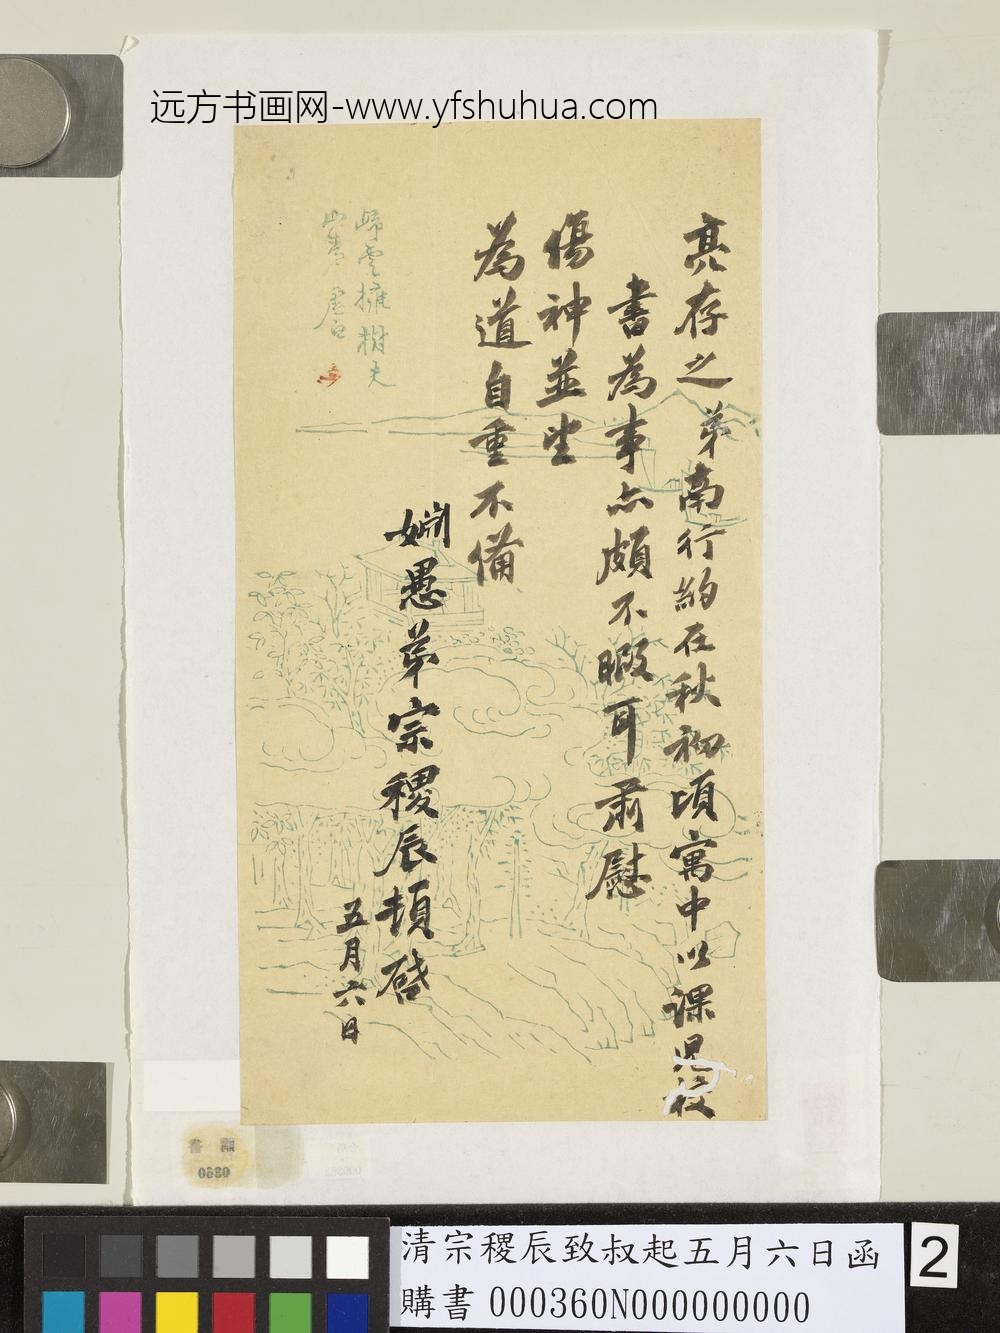 远方书画网-www.yfshuhua.com
亮存之弟南行約在秋初頃寓中以課兒校
書為事亦頗不暇耳肅慰
傷神並望
為道自重不備
姻愚弟宗稷辰頓啓
五月六日
歸雲擁樹失
山村 虛白
購書
0360
清宗稷辰致叔起五月六日函
購書 000360N000000000
2